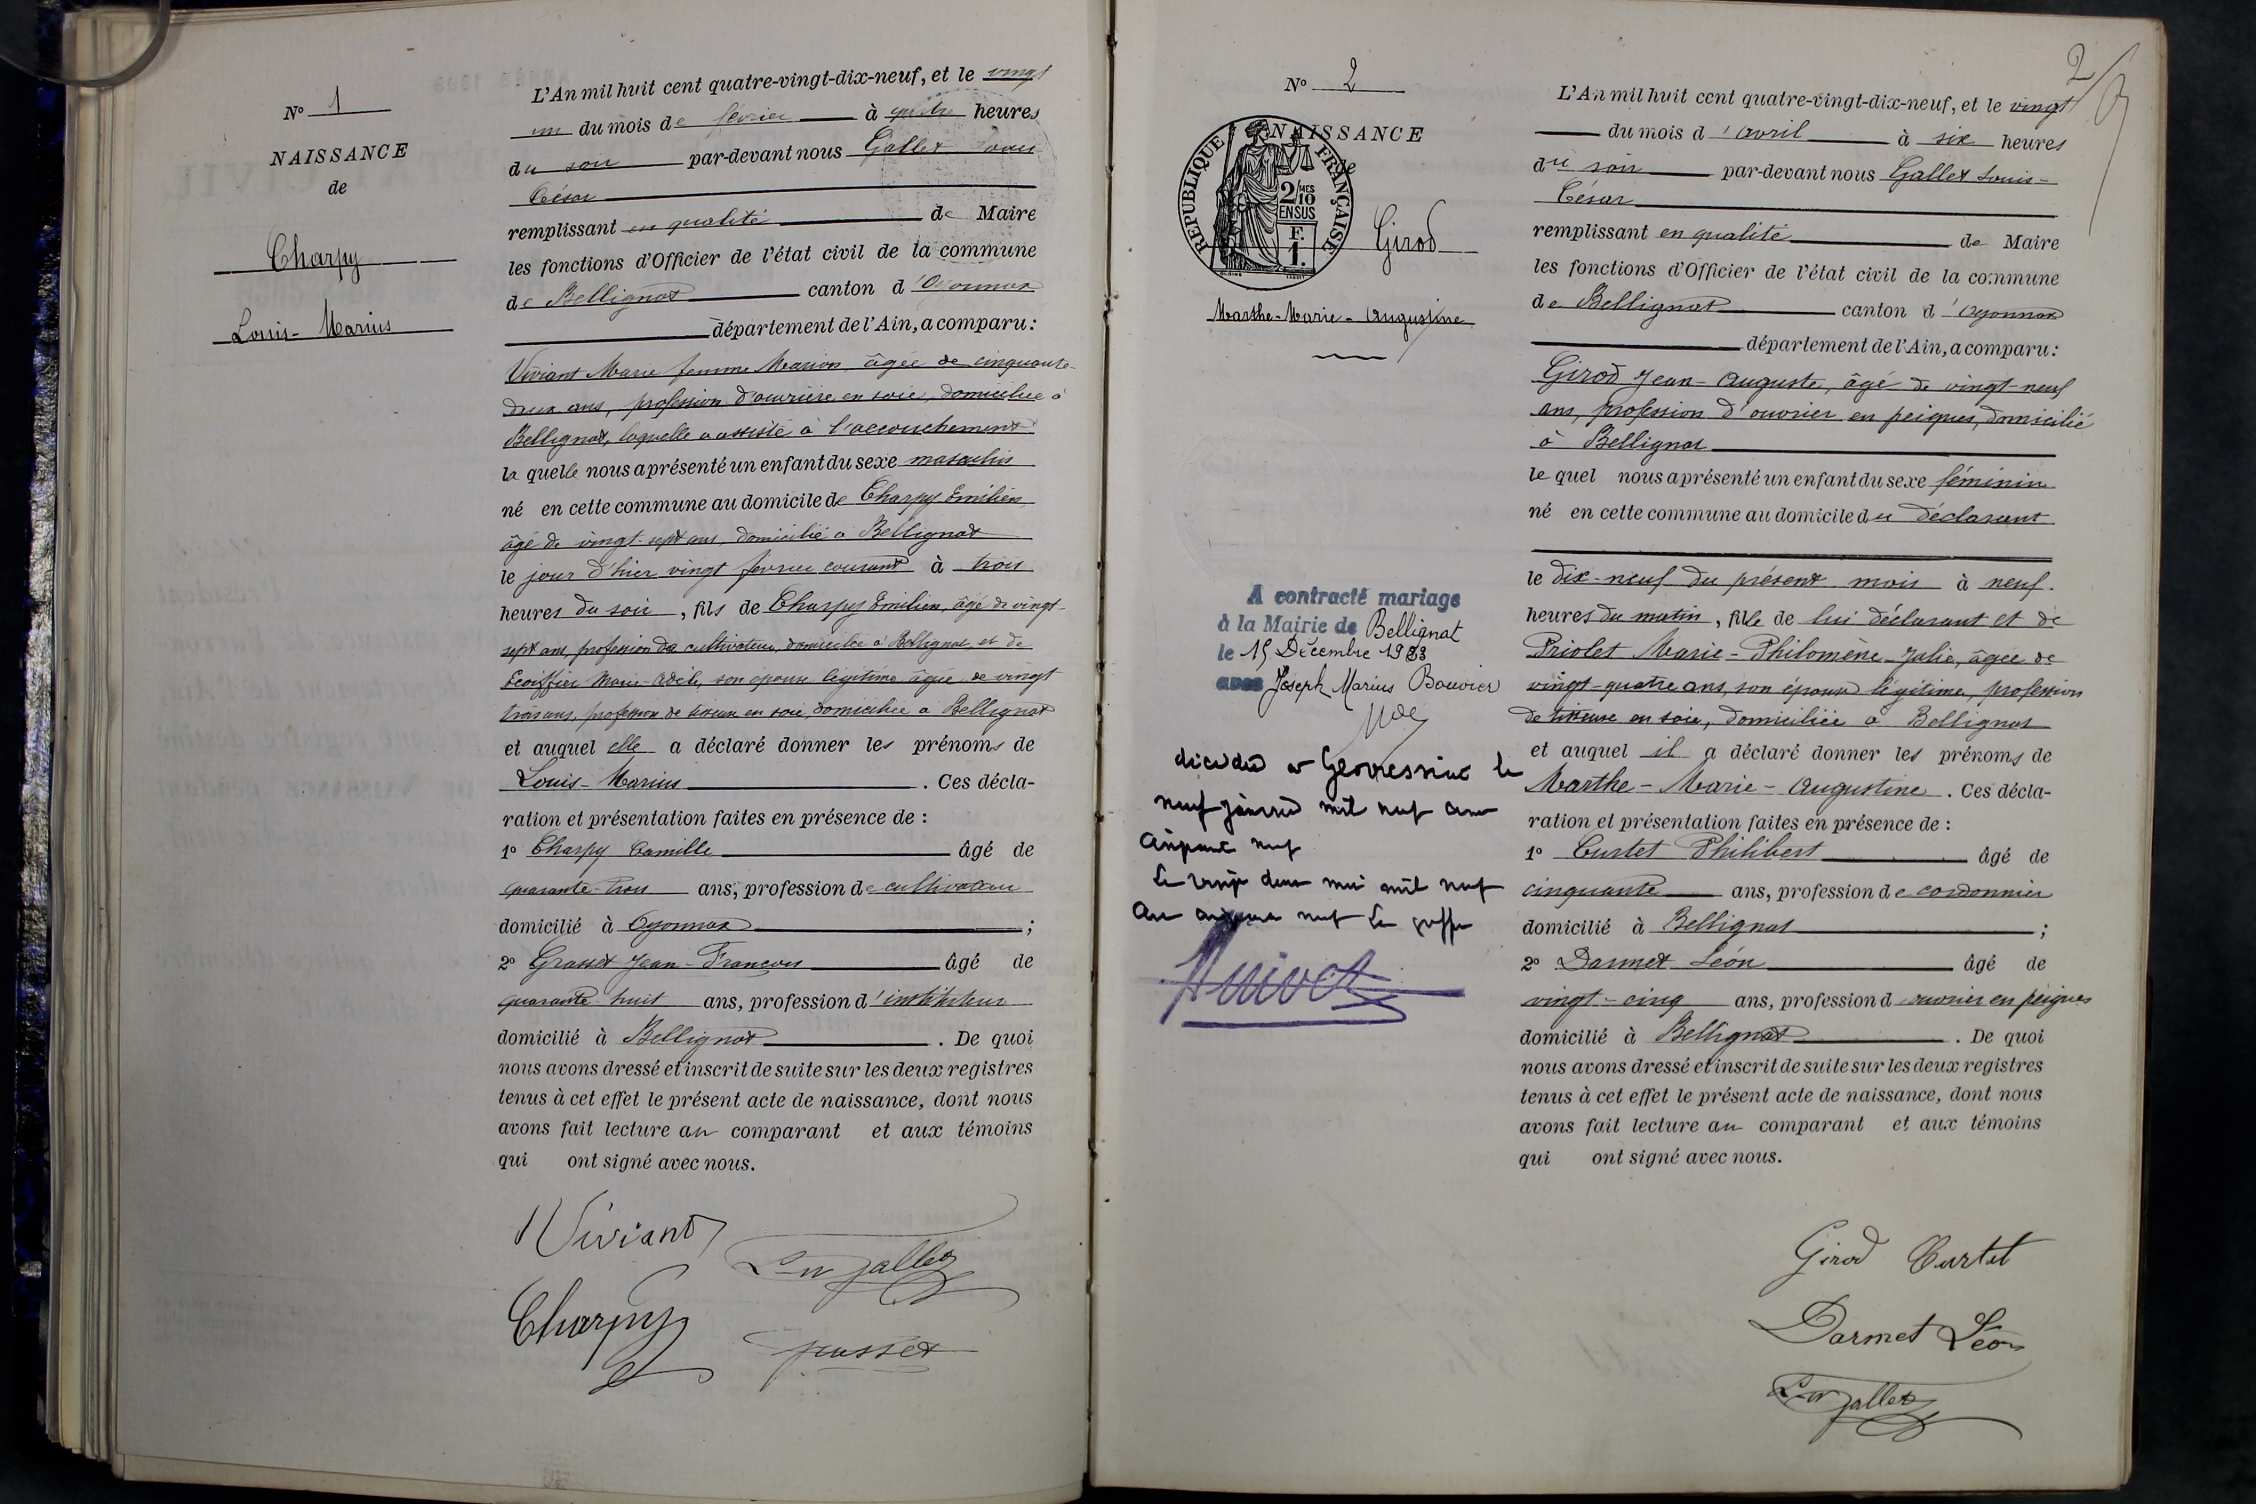 N° 1
NAISSANCE
de
Charpy
Louis-Marius
L'An mil huit cent quatre-vingt-dix-neuf, et le vingt
un du mois de février à quatre heures
du soir par-devant nous Gallet Louis
César
remplissant en qualité de Maire
les fonctions d'Officier de l'état civil de la commune
de Bellignat canton d'Oyonnax
département de l'Ain, a comparu :
Viviant Marie femme Masson âgée de cinquante-
deux ans, profession d'ouvrière en soie, domiciliée à
Bellignat, laquelle a assisté à l'accouchement
la quelle nous a présenté un enfant du sexe masculin
né en cette commune au domicile de Charpy Emilien
âgé de vingt-sept ans, domicilié à Bellignat
le jour d'hier vingt fevrier courant à trois
heures du soir, fils de Charpy Emilien, âgé de vingt-
sept ans, profession de cultivateur, domicilié à Bellignat, et de
Ecoiffier Marie-Adèle, son épouse légitime âgée de vingt
trois ans, profession de tisseuse en soie, domiciliée à Bellignat
et auquel elle a déclaré donner les prénoms de
Louis-Marius. Ces décla-
ration et présentation faites en présence de :
1° Charpy Camille âgé de
quarante-trois ans, profession de cultivateur
domicilié à Oyonnax ;
2° Grasset Jean-François âgé de
quarante-huit ans, profession d'instituteur
domicilié à Bellignat. De quoi
nous avons dressé et inscrit de suite sur les deux registres
tenus à cet effet le présent acte de naissance, dont nous
avons fait lecture au comparant et aux témoins
qui ont signé avec nous.
Viviant
Ls Gallet
Charpy
Grasset
2
N° 2
NAISSANCE
de
RÉPUBLIQUE FRANÇAISE
2/10 MES
EN SUS
F.
1.
Girod
Marthe-Marie-Augustine
A contracté mariage
à la Mairie de Bellignat
le 15 Décembre 1923
avec Joseph Marius Bouvier
décédée à Géovressiat le
neuf janvier mil neuf cent
cinquante neuf
Le vingt deux mai mil neuf
cent cinquante neuf Le greffier
L'An mil huit cent quatre-vingt-dix-neuf, et le vingt
du mois d'avril à six heures
du soir par-devant nous Gallet Louis-
César
remplissant en qualité de Maire
les fonctions d'Officier de l'état civil de la commune
de Bellignat canton d'Oyonnax
département de l'Ain, a comparu :
Girod Jean-Auguste, âgé de vingt-neuf
ans, profession d'ouvrier en peignes, domicilié
à Bellignat
le quel nous a présenté un enfant du sexe féminin
né en cette commune au domicile du déclarant
le dix-neuf du présent mois à neuf
heures du matin, fille de lui déclarant et de
Priolet Marie-Philomène-Julie, âgée de
vingt-quatre ans, son épouse légitime, profession
de tisseuse en soie, domiciliée à Bellignat
et auquel il a déclaré donner les prénoms de
Marthe-Marie-Augustine. Ces décla-
ration et présentation faites en présence de :
1° Curtet Philibert âgé de
cinquante ans, profession de cordonnier
domicilié à Bellignat ;
2° Darmet Léon âgé de
vingt-cinq ans, profession d ouvrier en peignes
domicilié à Bellignat. De quoi
nous avons dressé et inscrit de suite sur les deux registres
tenus à cet effet le présent acte de naissance, dont nous
avons fait lecture au comparant et aux témoins
qui ont signé avec nous.
Girod Curtet
Darmet Léon
Ls Gallet